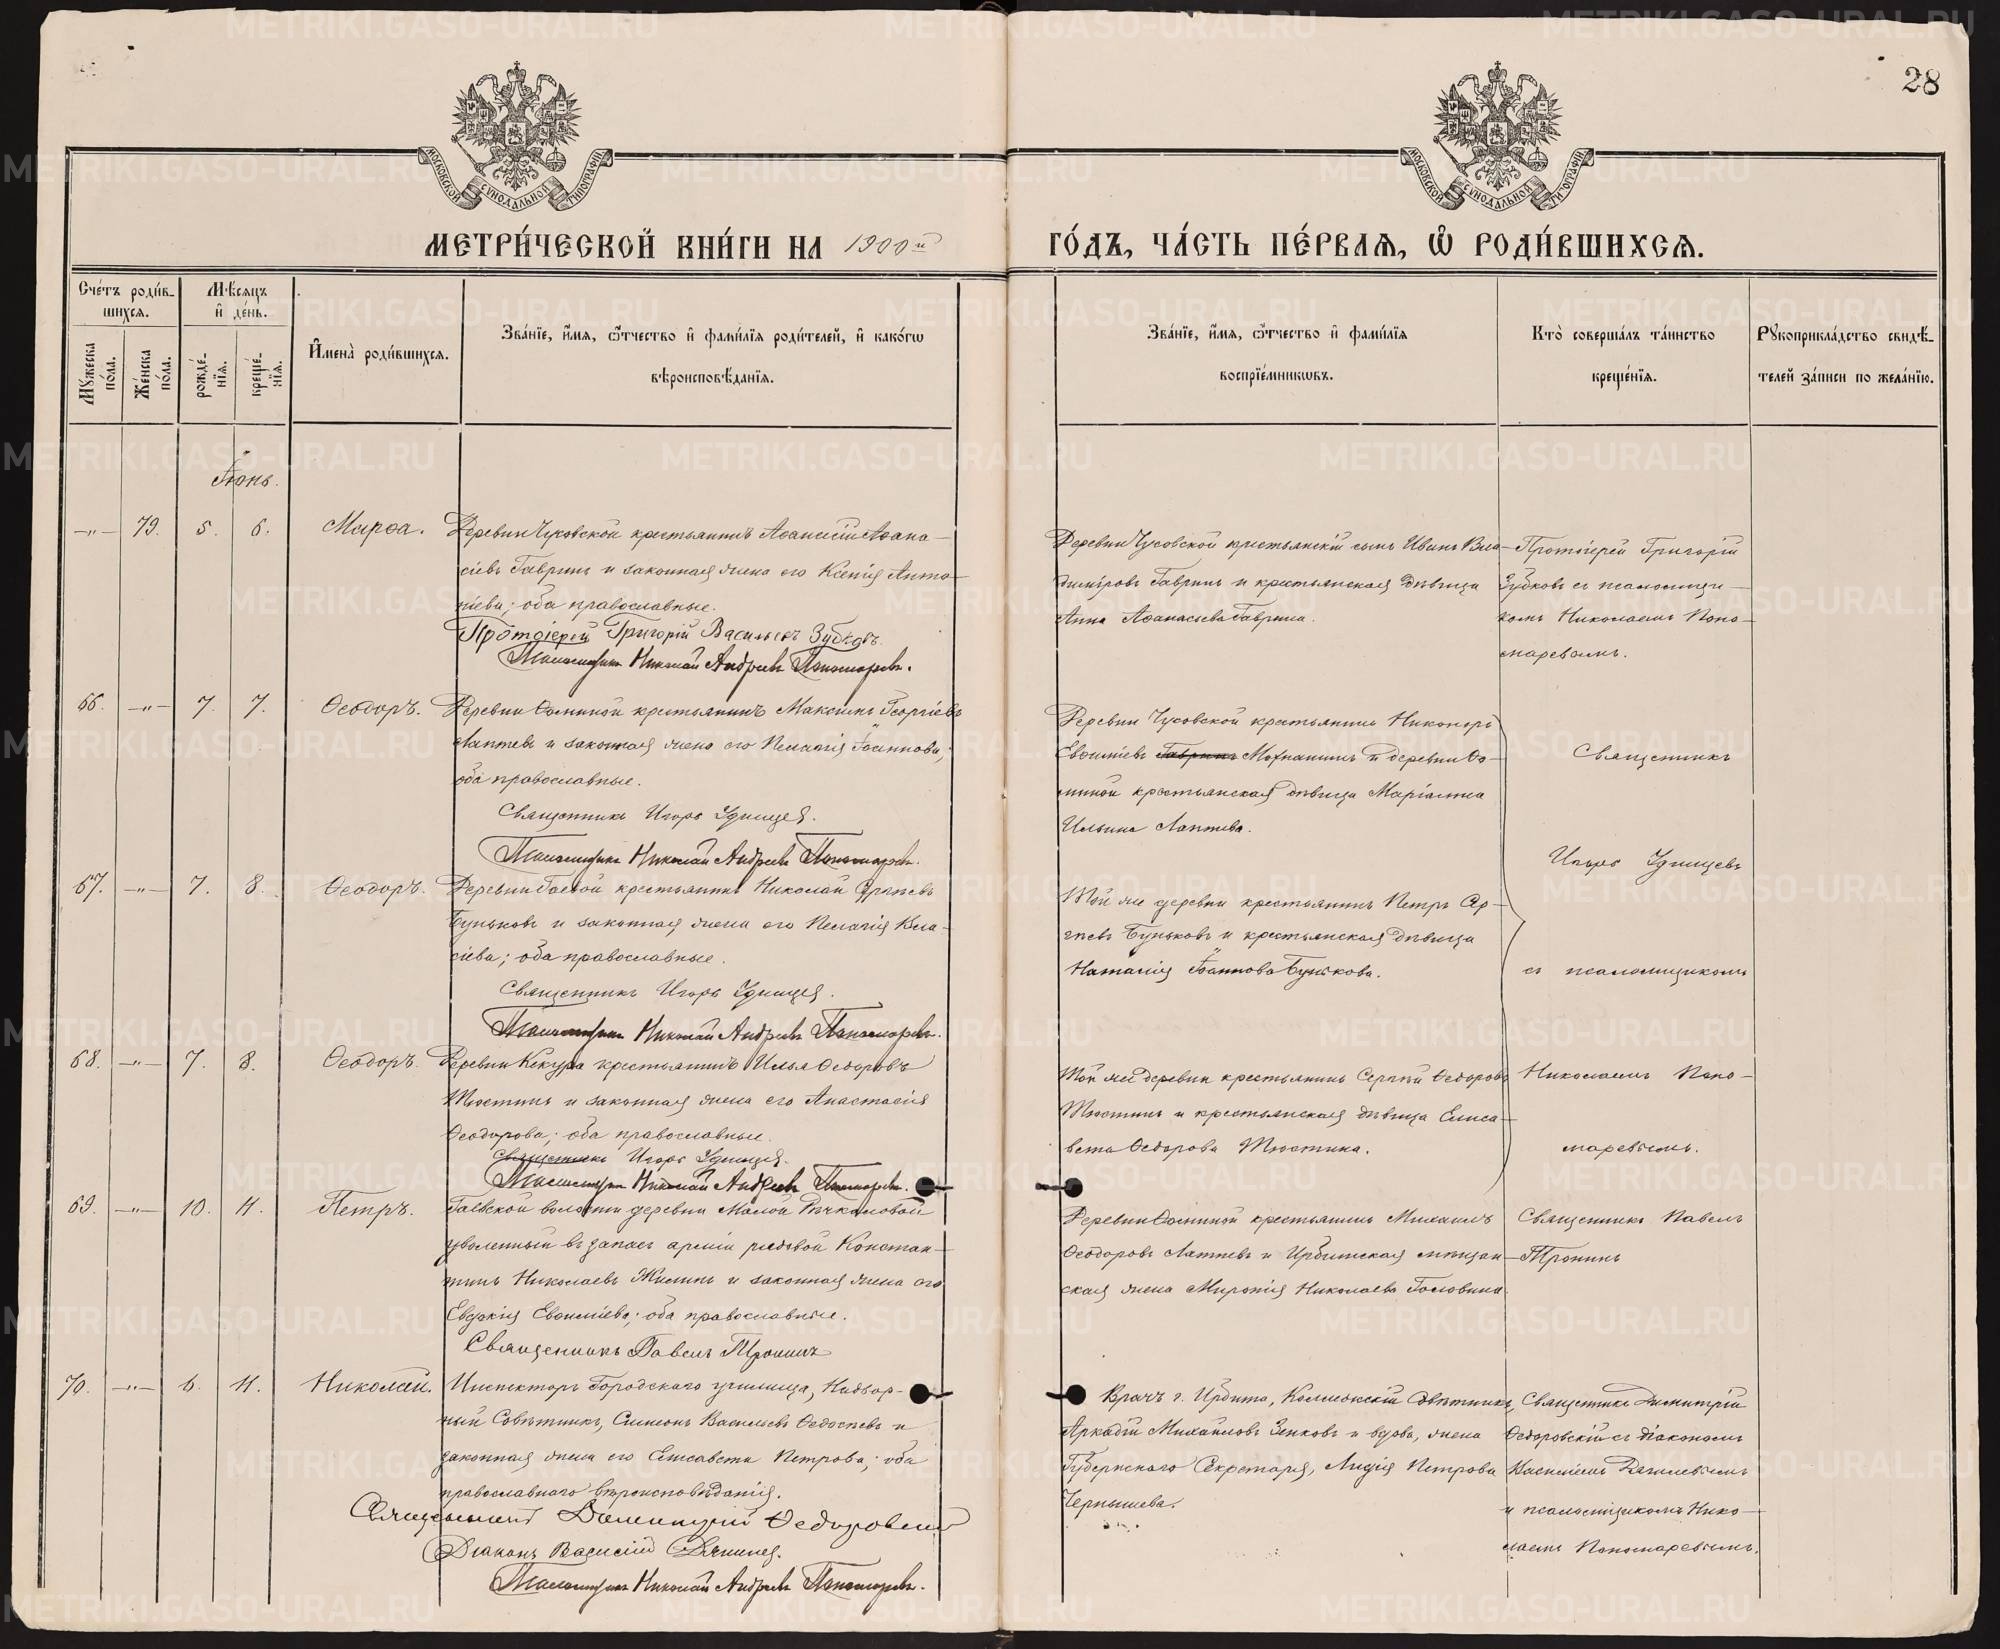 28
МОСКОВСКОЙ СѴНОДАЛЬНОЙ ТИПОГРАФІИ
МОСКОВСКОЙ СѴНОДАЛЬНОЙ ТИПОГРАФІИ
МЕТРИ́ЧЕСКОЙ КНИ́ГИ НА 1900й ГО́ДЪ, ЧА́СТЬ ПЕ́РВАѦ, Ѡ҆ РОДИ́ВШИХСѦ.
Сче́тъ роди́в-
шихсѧ.
Мꙋжеска по́ла.
Же́нска по́ла.
Мѣ́сѧцъ
и҆ де́нь.
рожде́-
нїѧ.
креще́-
нїѧ.
И҆мена̀ роди́вшихсѧ.
Зва́нїе, и҆́мѧ, ѻ҆́тчество и҆ фами́лїѧ роди́телей, и҆ како́гѡ
вѣроисповѣ́данїѧ.
Зва́нїе, и҆́мѧ, ѻ҆́тчество и҆ фами́лїѧ
воспрїе́мникѡвъ.
Кто̀ соверша́лъ та́инство
креще́нїѧ.
Рꙋкоприкла́дство свидѣ́-
телей за́писи по жела́нїю.
Іюнь.
—„— 79. 5. 6. Марѳа.
Деревни Чусовской крестьянинъ Аѳанасій Аѳана-
сіевъ Гавринъ и законная жена его Ксенія Анто-
ніева; оба православные.
Протоіерей Григорій Васильевъ Зубковъ.
Псаломщикъ Николай Андреевъ Пономаревъ.
Деревни Чусовской крестьянскій сынъ Иванъ Вла-
диміровъ Гавринъ и крестьянская дѣвица
Анна Аѳанасьева Гаврина.
Протоіерей Григорій
Зубковъ съ псаломщи-
комъ Николаемъ Поно-
маревымъ.
66. —„— 7. 7. Ѳеодоръ.
Деревни Ѳоминой крестьянинъ Максимъ Георгіевъ
Лаптевъ и законная жена его Пелагія Іоаннова;
оба православные.
Священникъ Игорь Удинцев.
Псаломщикъ Николай Андреевъ Пономаревъ.
Деревни Чусовской крестьянинъ Никаноръ
Евѳиміевъ Гавринъ Мохнашинъ и деревни Ѳо-
миной крестьянская дѣвица Маріамна
Ильина Лаптева.
67. —„— 7. 8. Ѳеодоръ.
Деревни Гаевой крестьянинъ Николай Сергѣевъ
Буньковъ и законная жена его Пелагія Вла-
сіева; оба православные.
Священникъ Игорь Удинцев.
Псаломщикъ Николай Андреевъ Пономаревъ.
Той же деревни крестьянинъ Петръ Сер-
гѣевъ Буньковъ и крестьянская дѣвица
Наталія Іоаннова Бунькова.
68. —„— 7. 8. Ѳеодоръ.
Деревни Кекура крестьянинъ Илья Ѳедоровъ
Тюстинъ и законная жена его Анастасія
Ѳеодорова; оба православные.
Священникъ Игорь Удинцев.
Псаломщикъ Николай Андреевъ Пономаревъ.
Той же деревни крестьянинъ Сергѣй Ѳедоровъ
Тюстинъ и крестьянская дѣвица Елиса-
вета Ѳедорова Тюстина.
Священникъ
Игорь Удинцевъ
съ псаломщикомъ
Николаемъ Поно-
маревымъ.
69. —„— 10. 11. Петръ.
Гаевской волости деревни Малой Рѣчкаловой
уволенный въ запасъ арміи рядовой Констан-
тинъ Николаевъ Жилинъ и законная жена его
Евдокія Евѳиміева; оба православные.
Священникъ Павелъ Тронинъ
Деревни Ѳоминой крестьянинъ Михаилъ
Ѳеодоровъ Лаптевъ и Ирбитская мѣщан-
ская жена Миропія Николаева Головина
Священникъ Павелъ
Тронинъ
70. —„— 6. 11. Николай.
Инспекторъ Городскаго училища, Надвор-
ный Совѣтникъ, Симеонъ Васильевъ Ѳедосѣевъ и
законная жена его Елисавета Петрова; оба
православнаго вѣроисповѣданія.
Священникъ Димитрій Ѳедоровскій
Діаконъ Василій
Псаломщикъ Николай Андреевъ Пономаревъ.
Врачъ г. Ирбита, Коллежскій Совѣтникъ,
Аркадій Михайловъ Зенковъ и вдова, жена
Губернскаго Секретаря, Лидія Петрова
Чернышева.
Священникъ Димитрій
Ѳедоровскій съ діакономъ
Василіемъ
и псаломщикомъ Нико-
лаемъ Пономаревымъ.
METRIKI.GASO-URAL.RU